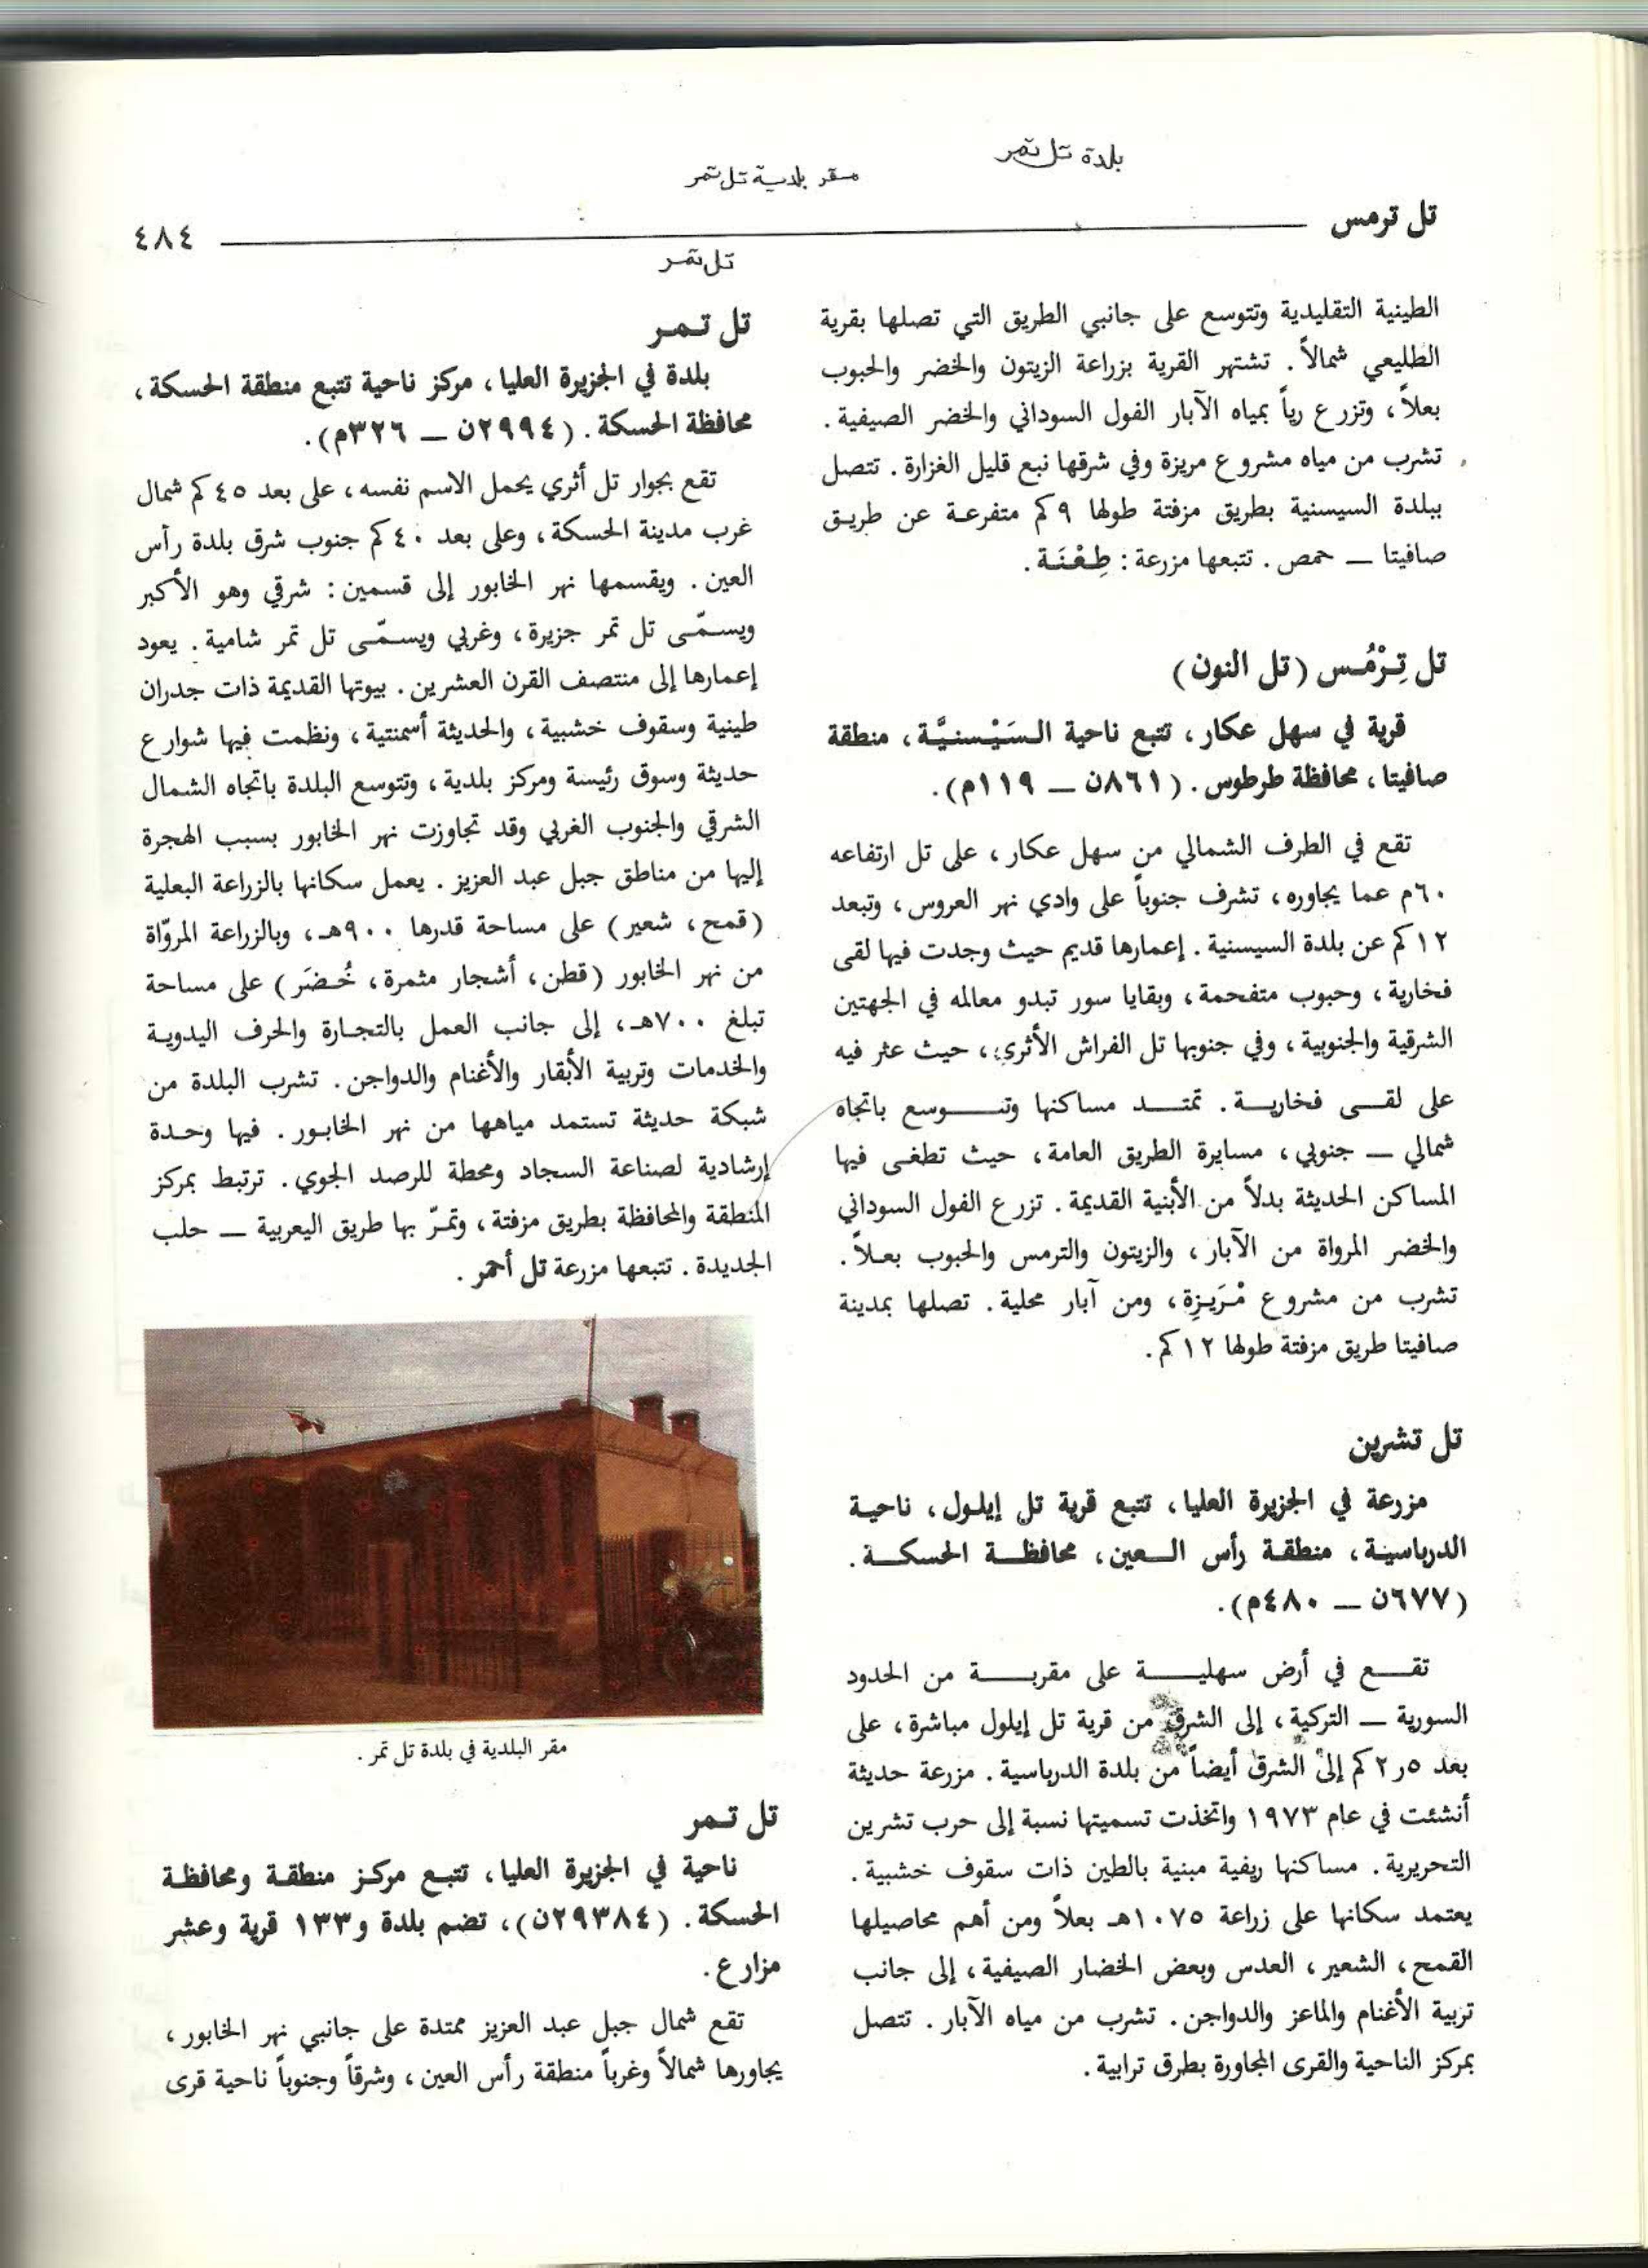 بلدة تل تمر
مقر بلدية تل تمر
تل ترمس
٤٨٤
تل تمر
الطينية التقليدية وتتوسع على جانبي الطريق التي تصلها بقرية
الطليعي شمالاً. تشتهر القرية بزراعة الزيتون والخضر والحبوب
بعلاً، وتزرع رياً بمياه الآبار الفول السوداني والخضر الصيفية.
تشرب من مياه مشروع مريزة وفي شرقها نبع قليل الغزارة. تتصل
ببلدة السيسنية بطريق مزفتة طولها ٩كم متفرعة عن طريق
صافيتا ــ حمص. تتبعها مزرعة: طِعْنَة.
تل تِرْمُس (تل النون)
قرية في سهل عكار، تتبع ناحية السَيْسنيَّة، منطقة
صافيتا، محافظة طرطوس. (٨٦١ن ــ ١١٩م).
تقع في الطرف الشمالي من سهل عكار، على تل ارتفاعه
٦٠م عما يجاوره، تشرف جنوباً على وادي نهر العروس، وتبعد
١٢كم عن بلدة السيسنية. إعمارها قديم حيث وجدت فيها لقى
فخارية، وحبوب متفحمة، وبقايا سور تبدو معالمه في الجهتين
الشرقية والجنوبية، وفي جنوبها تل الفراش الأثري، حيث عثر فيه
على لقى فخارية. تمتد مساكنها وتتوسع باتجاه
شمالي ــ جنوبي، مسايرة الطريق العامة، حيث تطغى فيها
المساكن الحديثة بدلاً من الأبنية القديمة. تزرع الفول السوداني
والخضر المرواة من الآبار، والزيتون والترمس والحبوب بعلاً.
تشرب من مشروع مْرَيزِة، ومن آبار محلية. تصلها بمدينة
صافيتا طريق مزفتة طولها ١٢كم.
تل تشرين
مزرعة في الجزيرة العليا، تتبع قرية تل إيلول، ناحية
الدرباسية، منطقة رأس العين، محافظة الحسكة.
(٦٧٧ن ــ ٤٨٠م).
تقع في أرض سهلية على مقربة من الحدود
السورية ــ التركية، إلى الشرق من قرية تل إيلول مباشرة، على
بعد ٥ر٢كم إلى الشرق أيضاً من بلدة الدرباسية. مزرعة حديثة
أنشئت في عام ١٩٧٣ واتخذت تسميتها نسبة إلى حرب تشرين
التحريرية. مساكنها ريفية مبنية بالطين ذات سقوف خشبية.
يعتمد سكانها على زراعة ١٠٧٥هـ بعلاً ومن أهم محاصيلها
القمح، الشعير، العدس وبعض الخضار الصيفية، إلى جانب
تربية الأغنام والماعز والدواجن. تشرب من مياه الآبار. تتصل
بمركز الناحية والقرى المجاورة بطرق ترابية.
تل تمر
بلدة في الجزيرة العليا، مركز ناحية تتبع منطقة الحسكة،
محافظة الحسكة. (٢٩٩٤ن ــ ٣٢٦م).
تقع بجوار تل أثري يحمل الاسم نفسه، على بعد ٤٥كم شمال
غرب مدينة الحسكة، وعلى بعد ٤٠كم جنوب شرق بلدة رأس
العين. ويقسمها نهر الخابور إلى قسمين: شرقي وهو الأكبر
ويسمّى تل تمر جزيرة، وغربي ويسمّى تل تمر شامية. يعود
إعمارها إلى منتصف القرن العشرين. بيوتها القديمة ذات جدران
طينية وسقوف خشبية، والحديثة أسمنتية، ونظمت فيها شوارع
حديثة وسوق رئيسة ومركز بلدية، وتتوسع البلدة باتجاه الشمال
الشرقي والجنوب الغربي وقد تجاوزت نهر الخابور بسبب الهجرة
إليها من مناطق جبل عبد العزيز. يعمل سكانها بالزراعة البعلية
(قمح، شعير) على مساحة قدرها ٩٠٠هـ، وبالزراعة المروّاة
من نهر الخابور (قطن، أشجار مثمرة، خُضَر) على مساحة
تبلغ ٧٠٠هـ، إلى جانب العمل بالتجارة والحرف اليدوية
والخدمات وتربية الأبقار والأغنام والدواجن. تشرب البلدة من
شبكة حديثة تستمد مياهها من نهر الخابور. فيها وحدة
إرشادية لصناعة السجاد ومحطة للرصد الجوي. ترتبط بمركز
المنطقة والمحافظة بطريق مزفتة، وتمرّ بها طريق اليعربية ــ حلب
الجديدة. تتبعها مزرعة تل أحمر.
مقر البلدية في بلدة تل تمر.
تل تمر
ناحية في الجزيرة العليا، تتبع مركز منطقة ومحافظة
الحسكة. (٢٩٣٨٤ن)، تضم بلدة و١٣٣ قرية وعشر
مزارع.
تقع شمال جبل عبد العزيز ممتدة على جانبي نهر الخابور،
يجاورها شمالاً وغرباً منطقة رأس العين، وشرقاً وجنوباً ناحية قرى